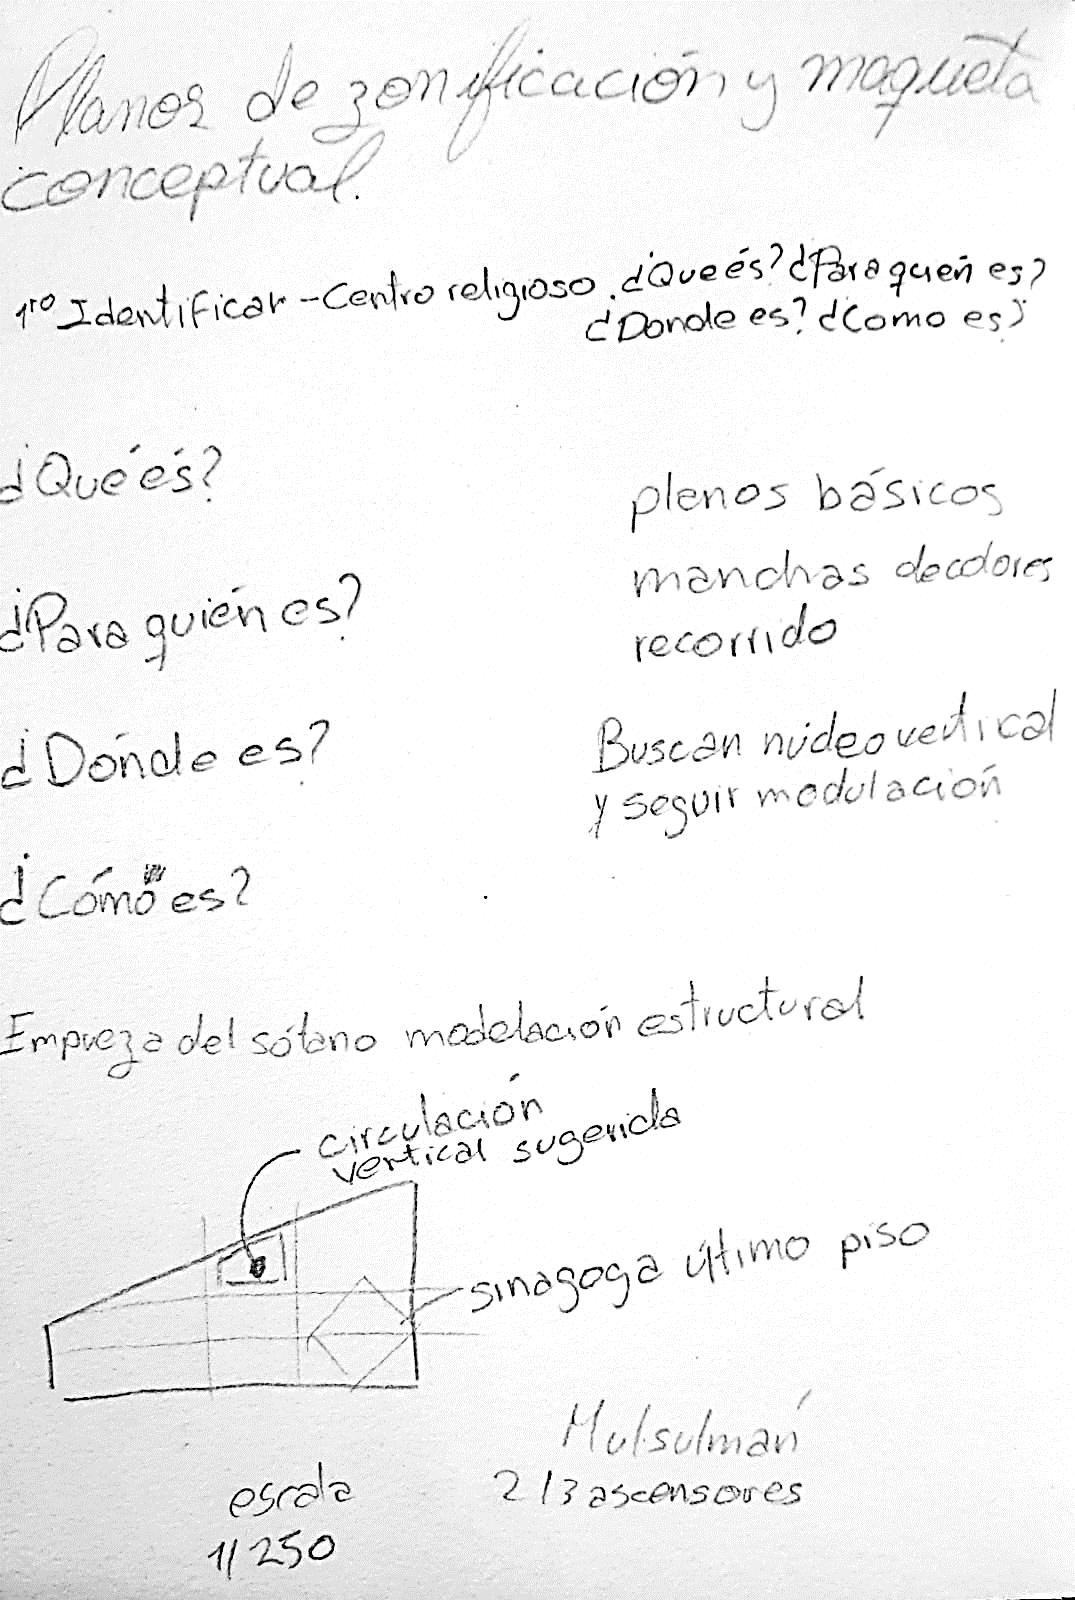 Planos de zonificación y maqueta
conceptual.
1ro Identificar - Centro religioso. ¿Que és? ¿Para quién es?
¿Donde es? ¿Como es?
¿Qué és?
planos básicos
manchas de colores
¿Para quién es?
recorrido
¿Dónde es?
Buscan núcleo vertical
y seguir modulación
¿Cómo es?
Empieza del sótano modelación estructural
circulación
vertical sugerida
sinagoga último piso
Mulsulmán
escala
2/3 ascensores
1/250